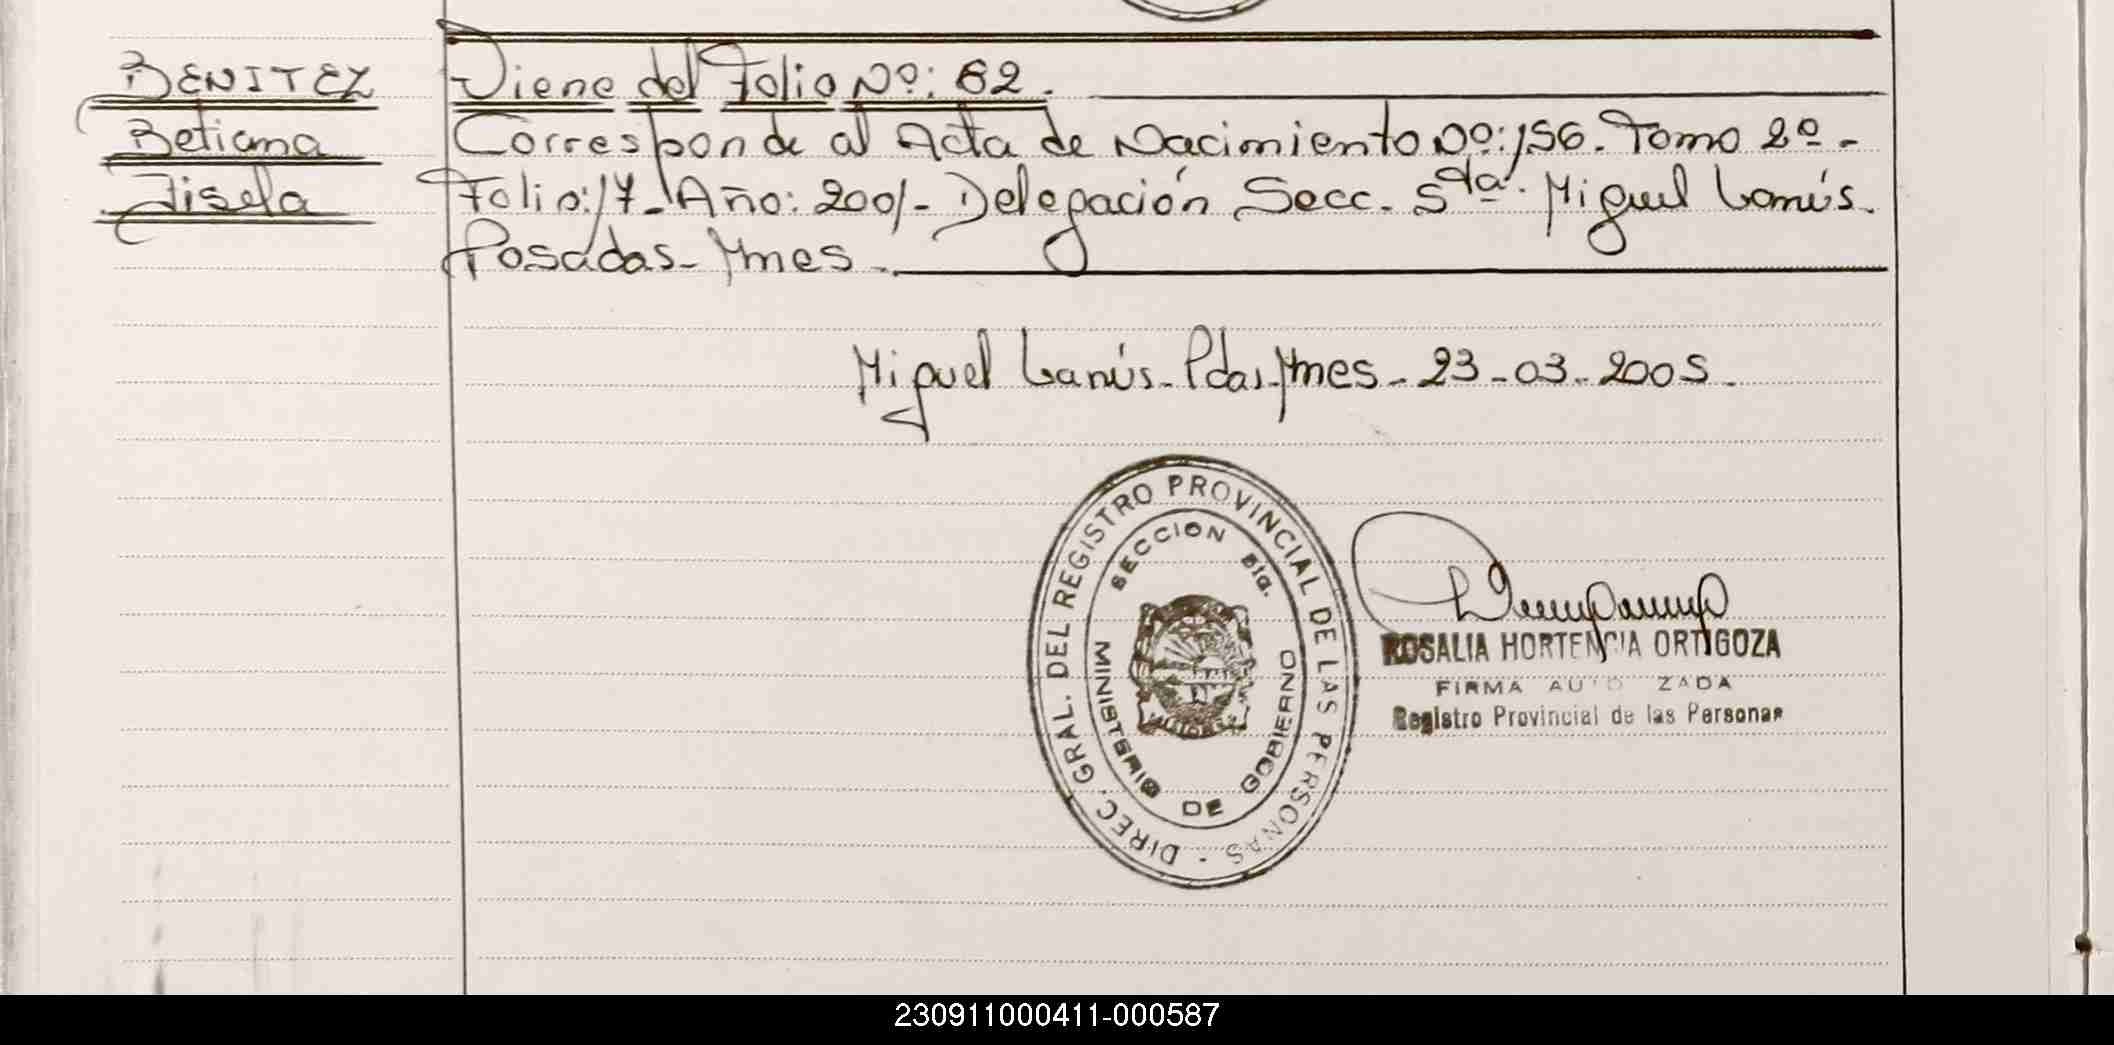 BENITEZ
Betiana
Jisela
Viene del Folio Nº: 62.
Corresponde al Acta de Nacimiento Nº: 156. Tomo 2º-
Folio: 17- Año: 2001- Delegación Secc. 5ta. Miguel Lanús.
Posadas- Mnes.
Miguel Lanús- Pdas- Mnes- 23-03-2005.
DIREC. GRAL. DEL REGISTRO PROVINCIAL DE LAS PERSONAS
SECCION 5ta.
MINISTERIO DE GOBIERNO
ROSALIA HORTENCIA ORTIGOZA
FIRMA AUTORIZADA
Registro Provincial de las Personas
230911000411-000587